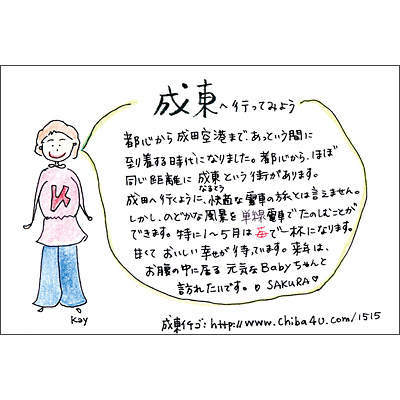 成東へ行ってみよう
都心から成田空港まで、あっという間に
到着する時代になりました。都心から、ほぼ
同じ距離に成東という街があります。
なるとう
成田へ行くように、快適な電車の旅とは言えません。
しかし、のどかな風景を単線電車でたのしむことが
できます。特に1〜5月は苺で一杯になります。
甘くておいしい幸せが待っています。来年は、
お腹の中に居る元気なBabyちゃんと
訪れたいです。♡ SAKURA♡
K
Kay
成東イチゴ:http://www.chiba4u.com/1515